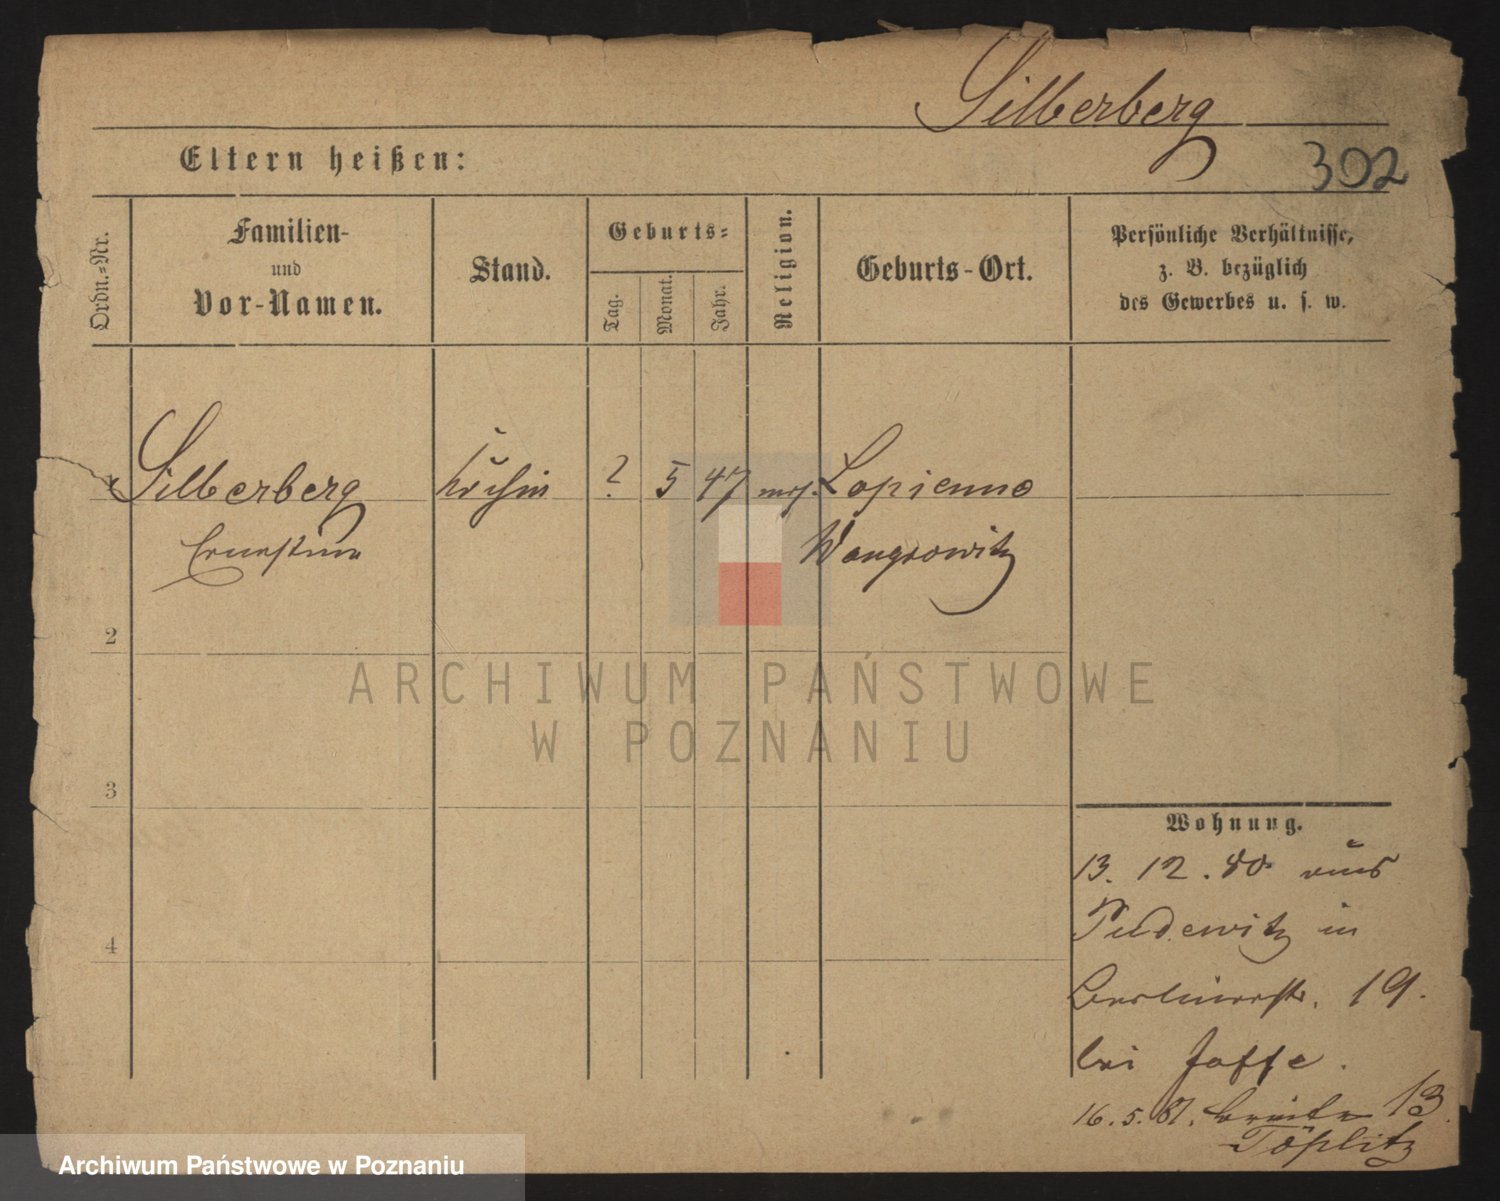 Silberberg
Eltern heißen:
302
Ordn.-Nr.
Familien-
und
Vor-Namen.
Stand.
Geburts-
Tag.
Monat.
Jahr.
Religion.
Geburts-Ort.
Persönliche Verhältnisse,
z. B. bezüglich
des Gewerbes u. s. w.
1 Silberberg Köchin ? 5 47 mos. Lopienno
Ernestine Wongrowitz
2
3
4
Wohnung.
13. 12. 80 aus
Pudewitz in
Berlinerstr. 19.
bei Jaffe.
16. 5. 81. Breite 13
Töplitz
ARCHIWUM PAŃSTWOWE
W POZNANIU
Archiwum Państwowe w Poznaniu